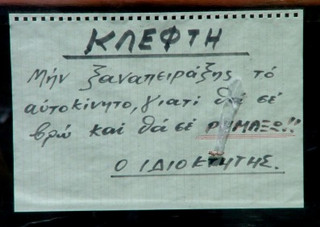 ΚΛΕΦΤΗ
Μήν ξαναπειράξης τό
αὐτοκίνητο, γιατί θά σέ
βρῶ καί θά σέ ΡΗΜΑΞΩ!!
Ο ΙΔΙΟΚΤΗΤΗΣ.